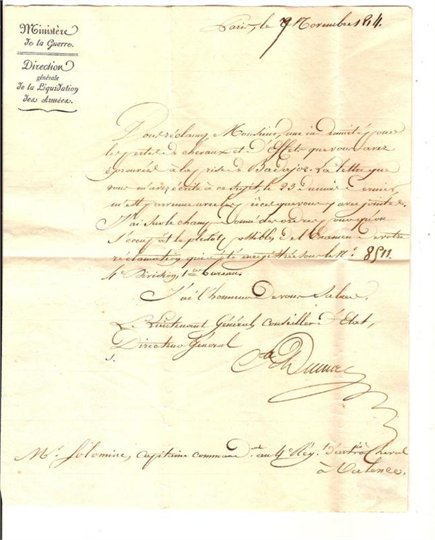 Ministère
de la Guerre.
Direction
générale
de la Liquidation
des Armées.
Paris, le 9 Novembre 1814.
Vous réclamez, Monsieur, une indemnité pour
les pertes de chevaux et d'Effets que vous avez
éprouvées à la prise de Badajoz. La lettre que
vous m'avez écrite à ce sujet le 23 dernier,
m'est parvenue avec les pièces que vous y avez jointes.
J'ai sur le champ donné des ordres pour qu'on
s'occupât le plutôt possible de l'Examen de votre
réclamation qui est enregistrée sous le N.° 8511.
4e Division, 1er Bureau.
J'ai l'honneur de vous saluer
Le Lieutenant Général, Conseiller d'Etat,
Directeur Général
Dumas
Mr. Solomiac, Capitaine command.nt au 4e Rég.t d'art.rie à Cheval
à Valence.